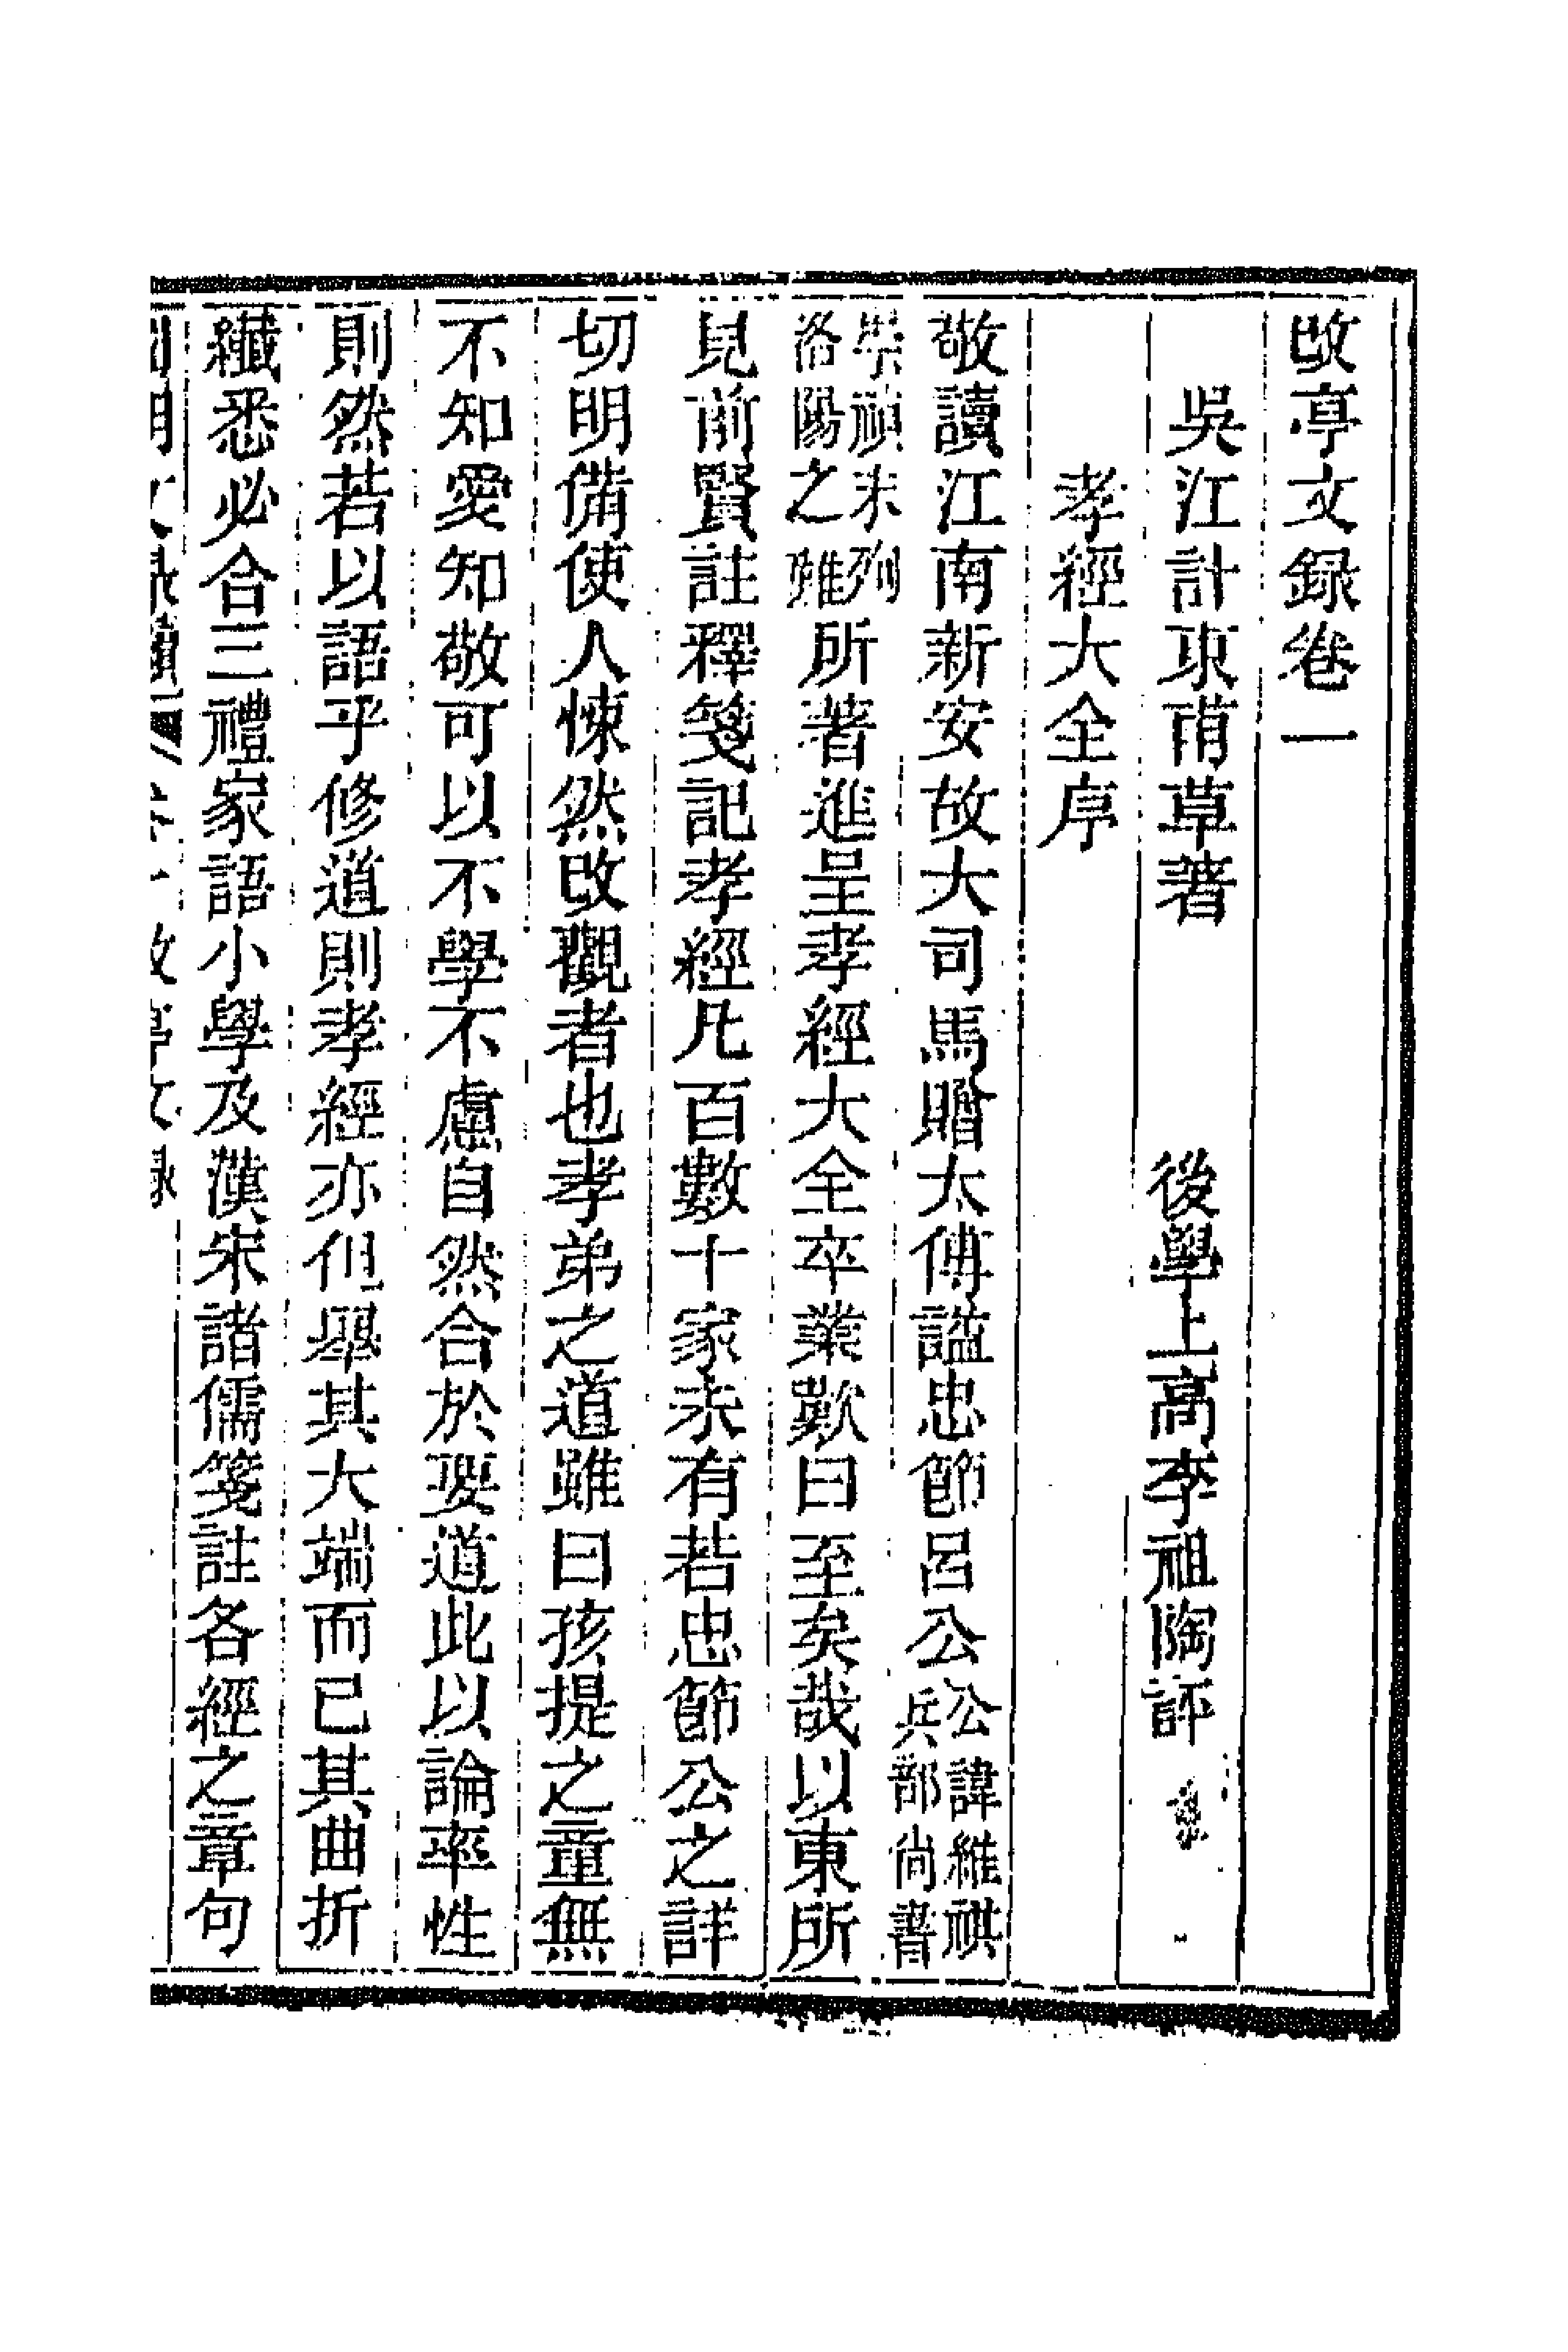 改亭文録卷一
吳江計東甫草著　後學上高李祖陶評
孝經大全序
敬讀江南新安故大司馬贈太傅諡忠節呂公公諱維祺兵部尚書
崇禎末殉洛陽之難所著進呈孝經大全卒業歎曰至矣哉以東所
見前賢註釋箋記孝經凡百數十家未有若忠節公之詳
切明備使人悚然改觀者也孝弟之道雖曰孩提之童無
不知愛知敬可以不學不慮自然合於要道此以論率性
則然若以語乎修道則孝經亦但舉其大端而已其曲折
纖悉必合三禮家語小學及漢宋諸儒箋註各經之章句
文録 改亭文録